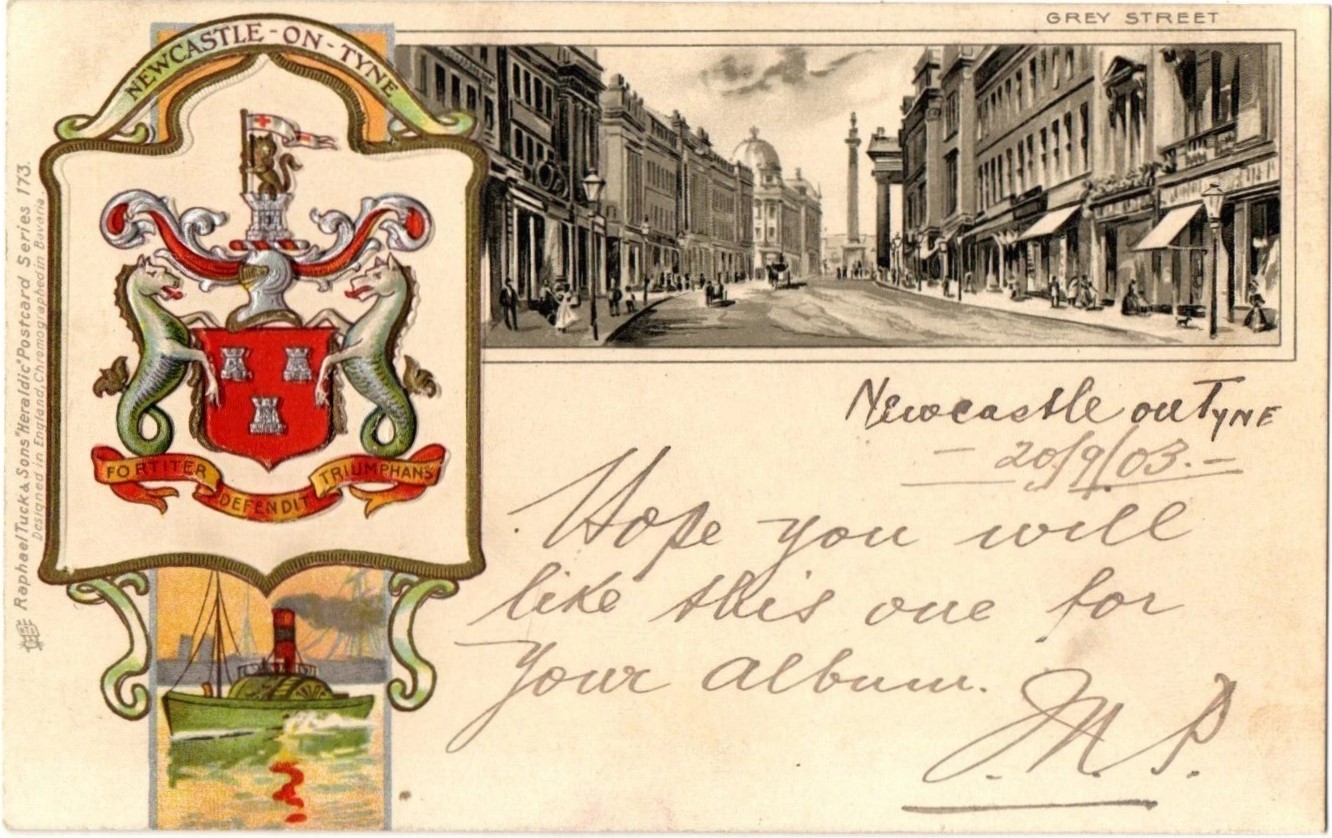 GREY STREET
NEWCASTLE-ON-TYNE
FORTITER DEFENDIT TRIUMPHANS
Raphael Tuck & Sons "Heraldic" Postcard Series 173.
Designed in England, Chromographed in Bavaria
Newcastle on TYNE
- 20/9/03. -
Hope you will
like this one for
your album.
M. P.